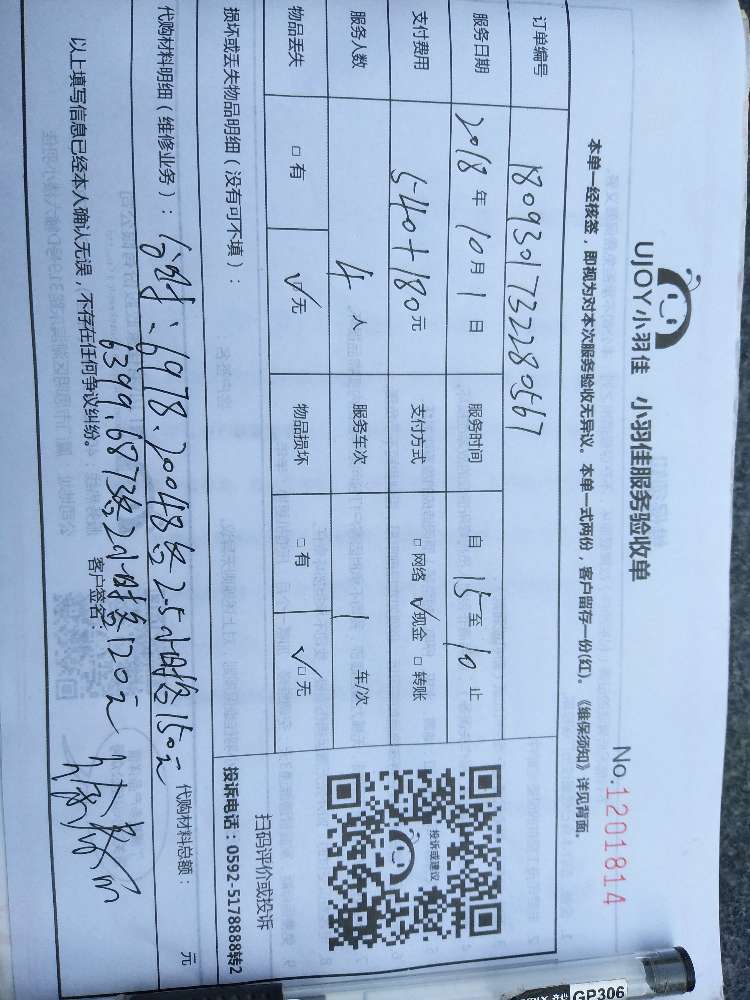 UJOY小羽佳 小羽佳服务验收单
No.1201814
本单一经核签，即视为对本次服务验收无异议。本单一式两份，客户留存一份(红)。《维保须知》详见背面。
订单编号 1809301732280567
服务日期 2018年10月1日 服务时间 自15至10止
支付费用 540+180元 支付方式 □网络 √现金 □转账
服务人数 4人 服务车次 1车/次
物品丢失 □有 √无 物品损坏 □有 √□无
损坏或丢失物品明细（没有可不填）：
投诉或建议
扫码评价或投诉
投诉电话：0592-5178888转2
代购材料明细（维修业务）： 6978.20048各2.5小时各150元 代购材料总额： 元
6399.6873各2小时各120元
以上填写信息已经本人确认无误，不存在任何争议纠纷。 客户签名：
GP306